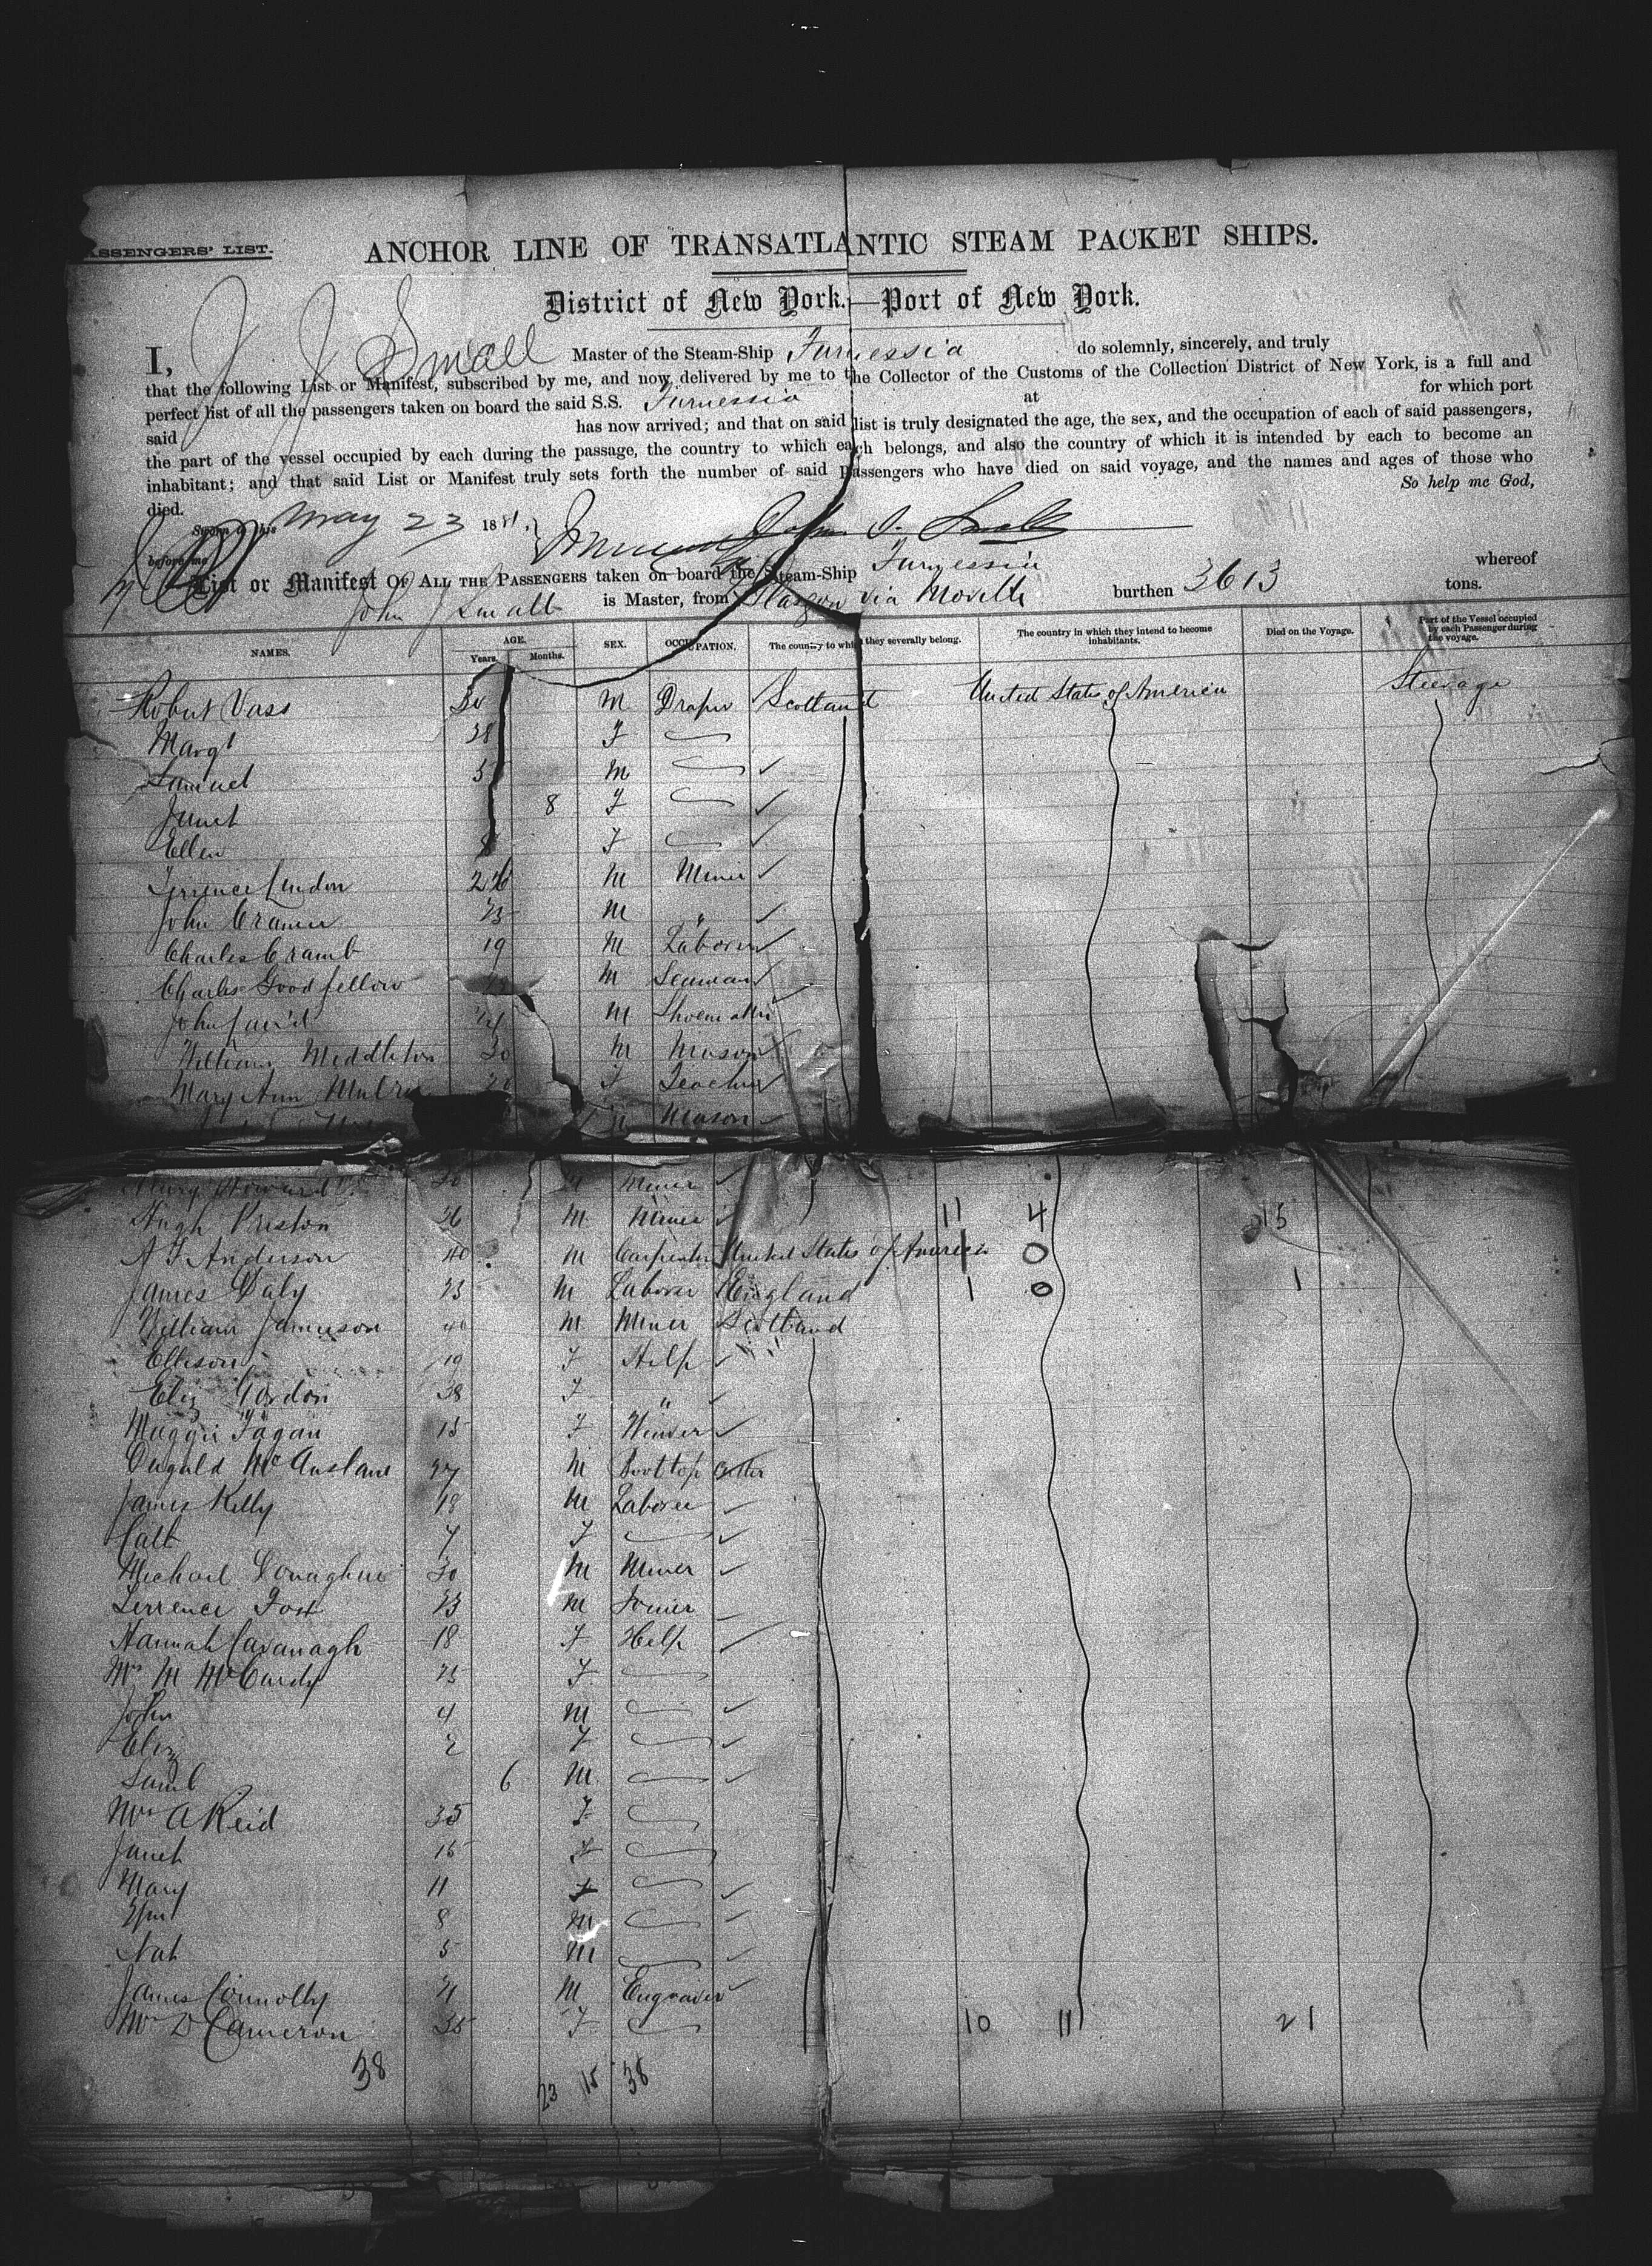 PASSENGERS' LIST.
ANCHOR LINE OF TRANSATLANTIC STEAM PACKET SHIPS.
District of New York.—Port of New York.
I, J J Small Master of the Steam-Ship Furnessia do solemnly, sincerely, and truly
that the following List or Manifest, subscribed by me, and now delivered by me to the Collector of the Customs of the Collection District of New York, is a full and
perfect list of all the passengers taken on board the said S.S. Furnessia at for which port
said has now arrived; and that on said list is truly designated the age, the sex, and the occupation of each of said passengers,
the part of the vessel occupied by each during the passage, the country to which each belongs, and also the country of which it is intended by each to become an
inhabitant; and that said List or Manifest truly sets forth the number of said passengers who have died on said voyage, and the names and ages of those who
died. So help me God,
Sworn to this May 23 1881. John J. Small
before me
List or Manifest OF ALL THE PASSENGERS taken on board the Steam-Ship Furnessia whereof
John J Small is Master, from Glasgow via Moville burthen 3613 tons.
NAMES. AGE. Years. Months. SEX. OCCUPATION. The country to which they severally belong. The country in which they intend to become inhabitants. Died on the Voyage. Part of the Vessel occupied by each Passenger during the voyage.
Robert Vass 30 M Draper Scotland United States of America Steerage
Margt 28 F
Samuel 3 M
Janet 8 F
Ellen F
Terrence Lindon 26 M Miner
John Cramer 23 M "
Charles Cramb 19 M Laborer
Charles Goodfellow M Seaman
John Laird 24 M Shoemaker
William Middleton 30 M Mason
Mary Ann F Teacher
M Mason
Howard 30 M Miner
Hugh Preston 26 M Miner 11 4 15
A F Anderson 40 M Carpenter United States of America 1 0
James Daly 23 M Laborer England 1 0 1
William Jamieson 40 M Miner Scotland
Ellison 19 F Help
Eliz Gordon 38 F "
Maggie Fagan 15 F Winder
Dugald McAuslane 27 M Boottop Cutter
James Kelly 18 M Laborer
Cath 7 F
Michael Donaghue 30 M Miner
Terrence Fox 23 M Joiner
Hannah Cavanagh 18 F Help
Mrs M McCurdy 25 F
John 4 M
Eliz 2 F
Saml 6 M
Mrs A Reid 35 F
Janet 15 F
Mary 11 F
Wm 8 M
Nah 5 M
James Connolly 21 M Engraver
Mrs D Cameron 35 F 10 11 21
38 23 15 38